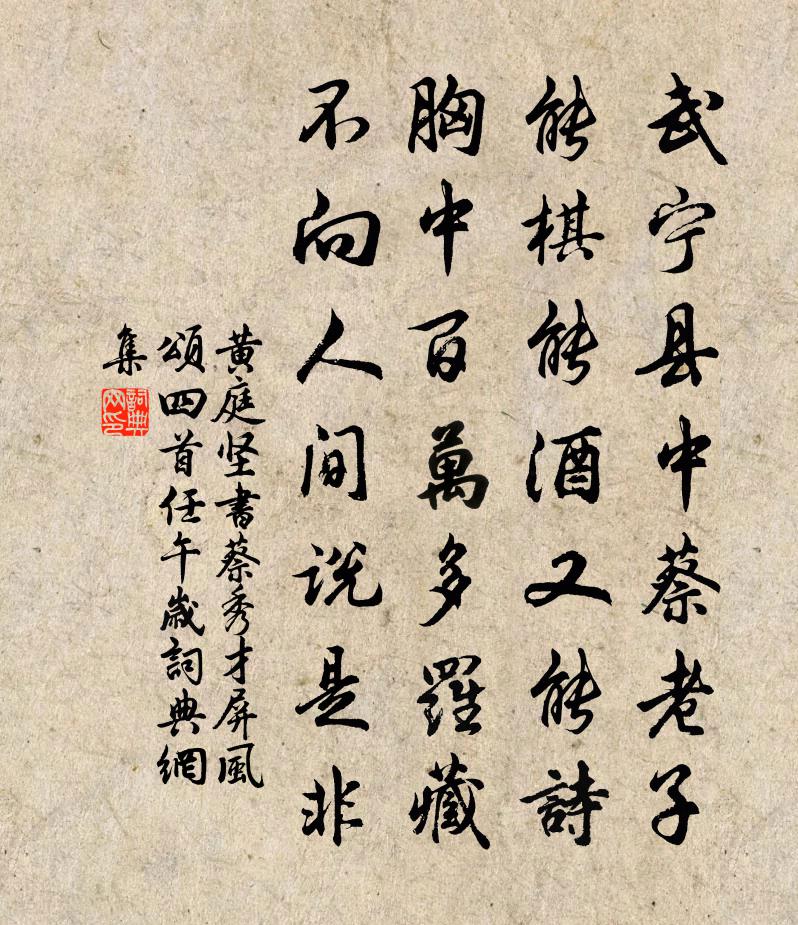 武宁县中蔡老子
能棋能酒又能詩
胸中百萬多羅藏
不向人间说是非
黄庭坚书蔡秀才屏風
頌四首任午歲詞典網
集
詞典
网印